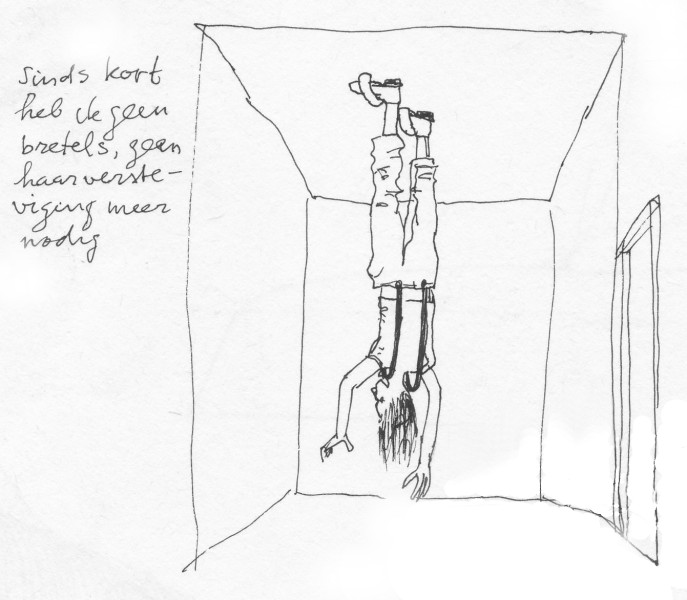 Sinds kort
heb ik geen
bretels, geen
haarverste-
viging meer
nodig